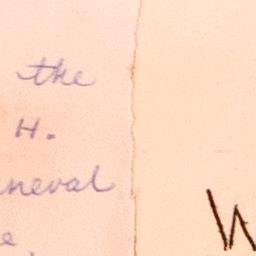 the
H.
neval
e.
W